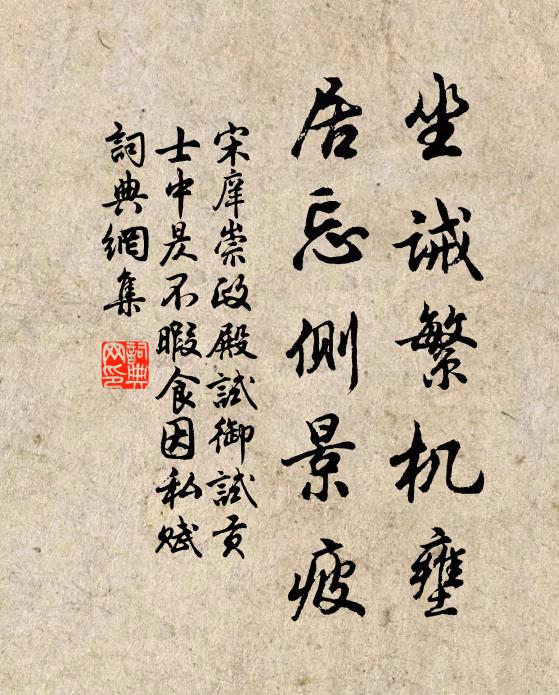 坐诫繁机壅
居忘侧景疲
宋庠崇政殿試御試貢
士中昃不暇食因私赋
詞典網集
詞典
网印